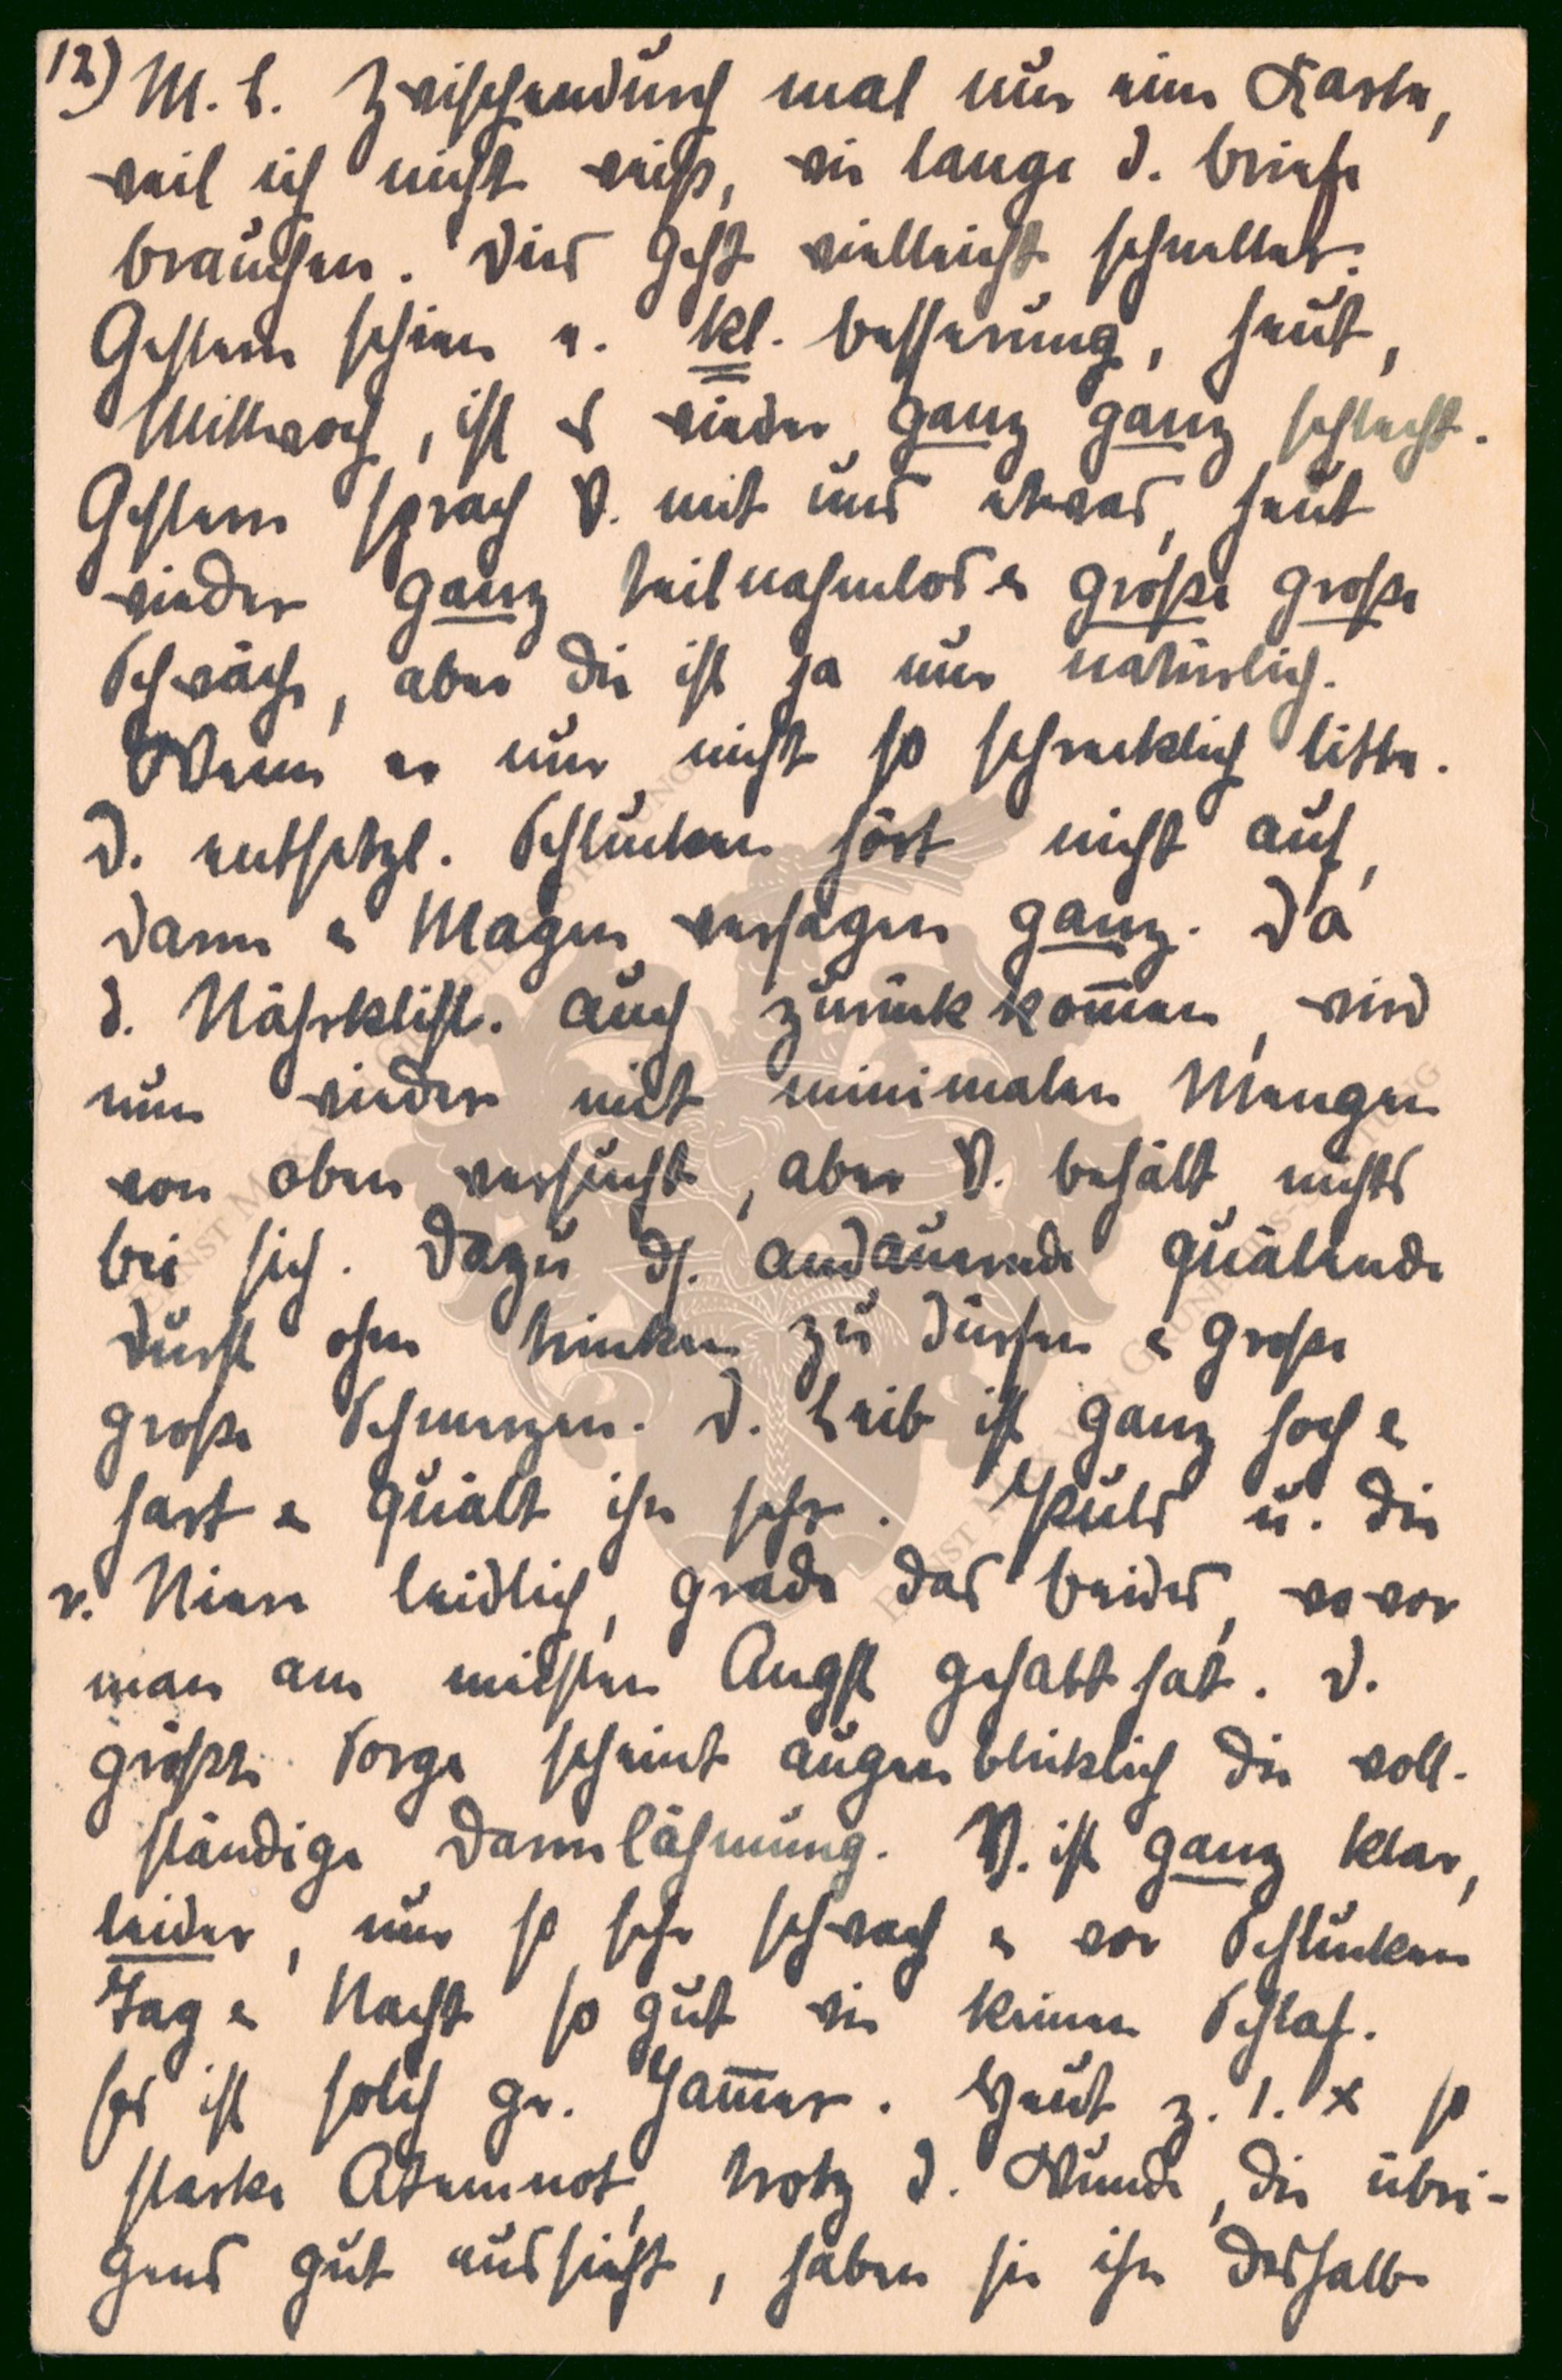 12) M. L. Zwischendurch mal nur eine Karte,
weil ich nicht weiß, wie lange d. Briefe
brauchen. Dies geht vielleicht schneller.
Gestern schien e. kl. Besserung, heut,
Mittwoch, ist es wieder ganz ganz schlecht.
Gestern sprach V. mit uns etwas, heut
wieder ganz teilnahmslos & große große
Schwäche, aber die ist ja nur natürlich.
Wenn er nur nicht so schrecklich litte.
D. entsetzl. Schlucken hört nicht auf,
Darm & Magen versagen ganz. Da
d. Nährklist. auch zurückkom̅en, wird
nun wieder mit minimalen Mengen
von oben versucht, aber V. behält nichts
bei sich. Dazu ds. andauernde quälende
Durst ohne trinken zu dürfen & große
große Schmerzen. D. Leib ist ganz hoch &
hart & quält ihn sehr. Puls u. die
r. Niere leidlich, grade das beides, wovor
man am meisten Angst gehabt hat. D.
größte Sorge scheint augenblicklich die voll-
ständige Darmlähmung. V. ist ganz klar,
leider, nur so sehr schwach & vor Schlucken
Tag & Nacht so gut wie keinen Schlaf.
Es ist solch gr. Jam̅er. Heut z. 1. x so
starke Atemnot, trotz d. Wunde, die übri-
gens gut aussieht, haben sie ihn deshalb
ERNST MAX VON GRUNELIUS-STIFTUNG
ERNST MAX VON GRUNELIUS-STIFTUNG